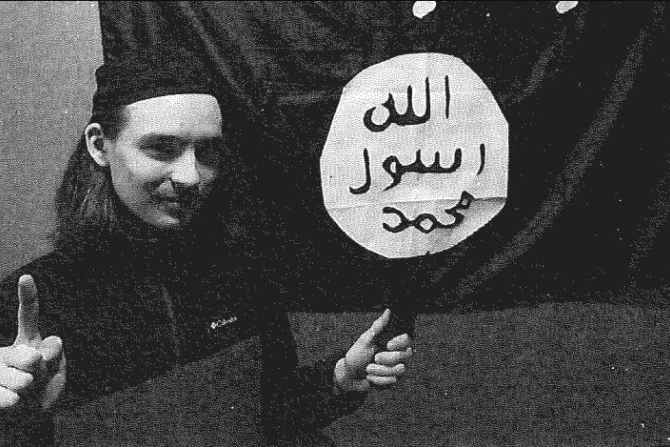 الله
رسول
محمد
Columbia